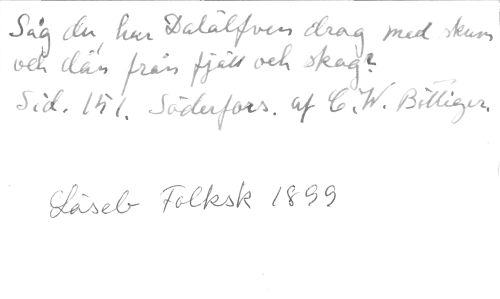 Såg du, hur Dalälfven drog med skum
och dån från fjäll och skog?
Sid. 151. Söderfors. af C. W. Böttiger.
Läseb Folksk 1899